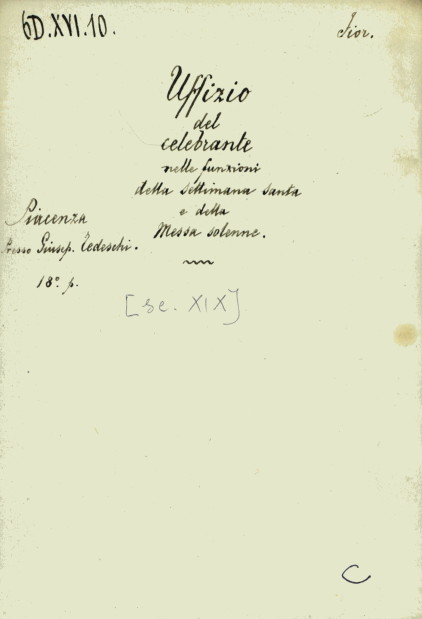 6D.XVI.10.
Fior.
Uffizio
del
celebrante
nelle funzioni
della settimana santa
e della
Messa solenne.
Piacenza
Presso Giusep. Tedeschi.
18º. p.
[se. XIX]
C